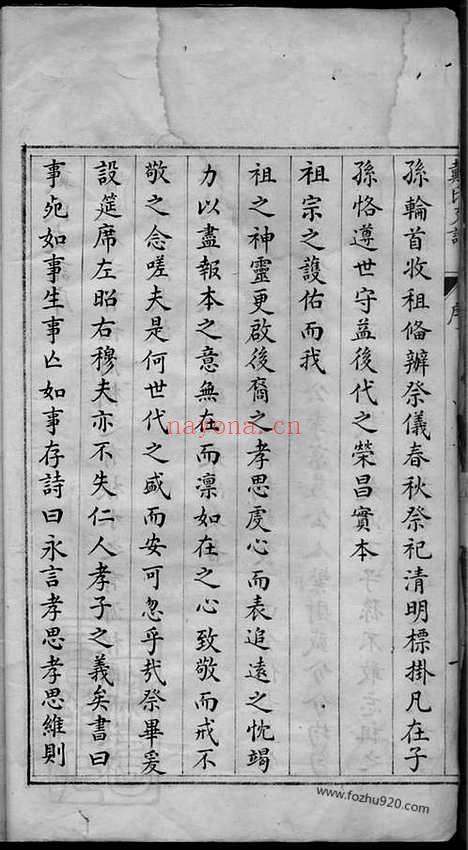 孫輪首收租備辦祭儀春秋祭祀清明標掛凡在子
孫恪遵世守益後代之榮昌實本
祖宗之護佑而我
祖之神靈更啟後裔之孝思虔心而表追遠之忱竭
力以盡報本之意無在而凛如在之心致敬而戒不
敬之念嗟夫是何世代之盛而安可忽乎㢤祭畢爰
設筵席左昭右穆夫亦不失仁人孝子之義矣書曰
事宛如事生事亡如事存詩曰永言孝思孝思維則
nayona.cn
www.fozhu920.com